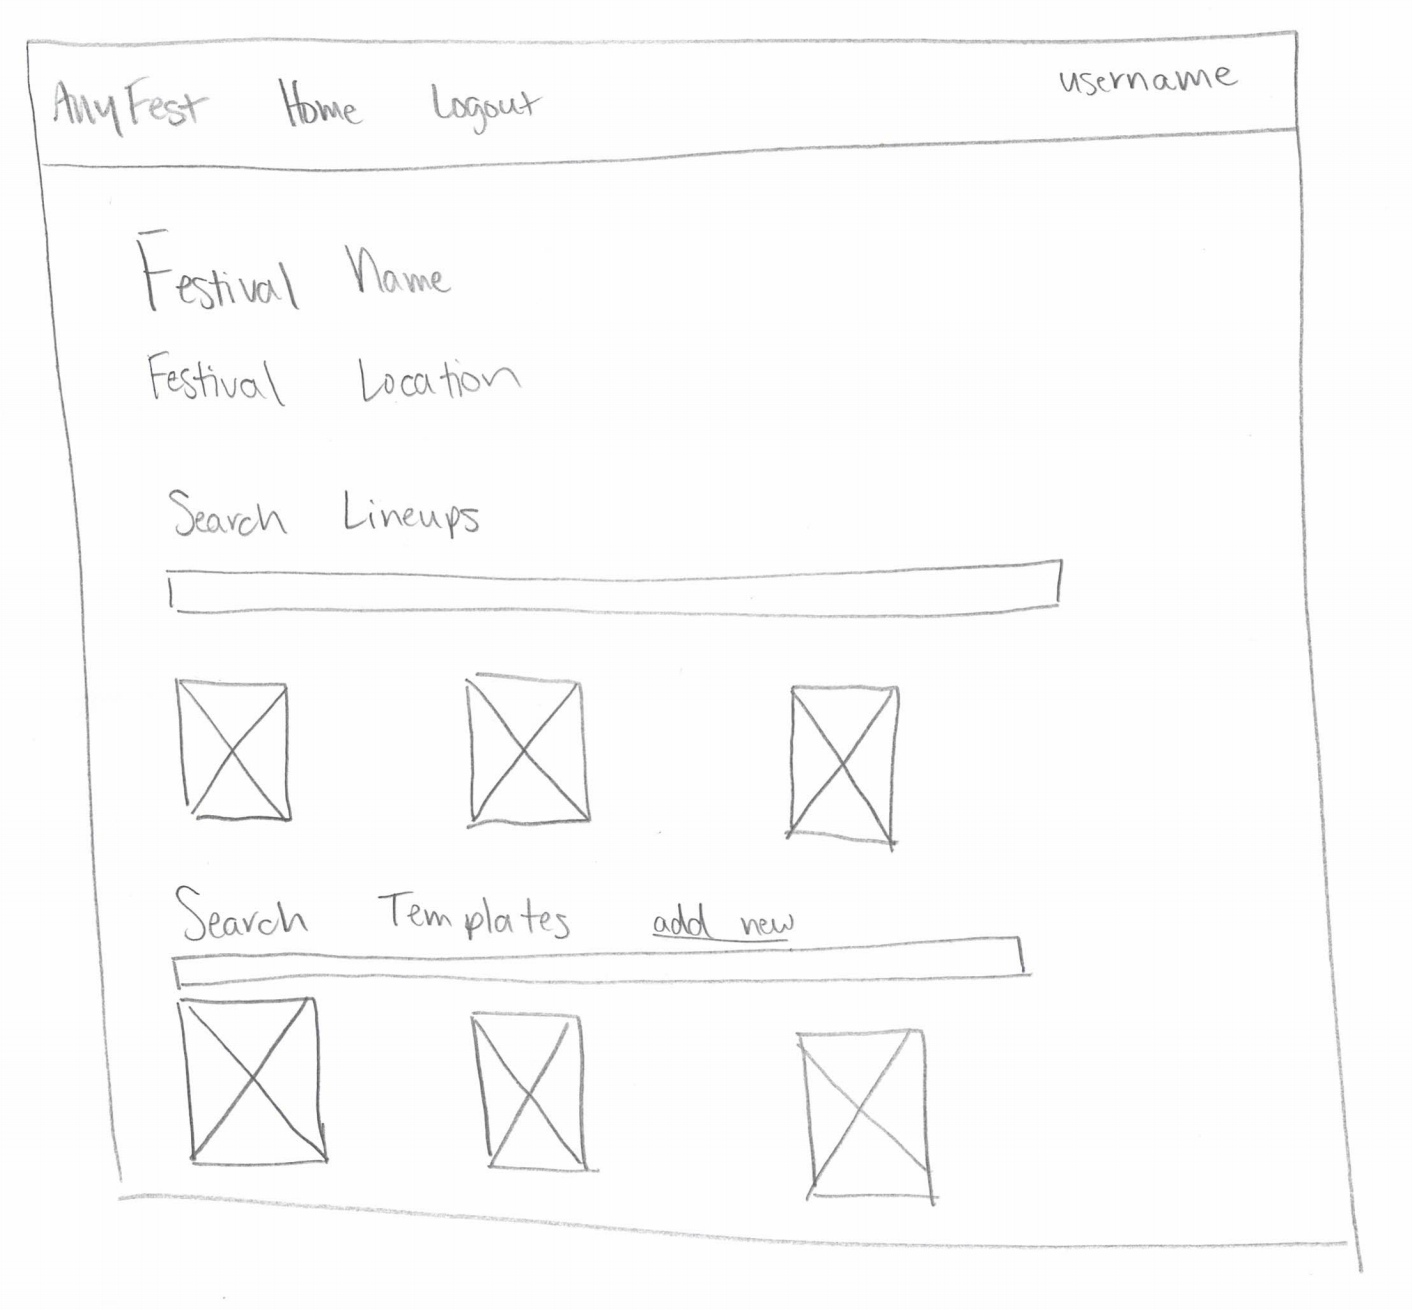 AnyFest Home Logout username
Festival Name
Festival Location
Search Lineups
Search Templates add new